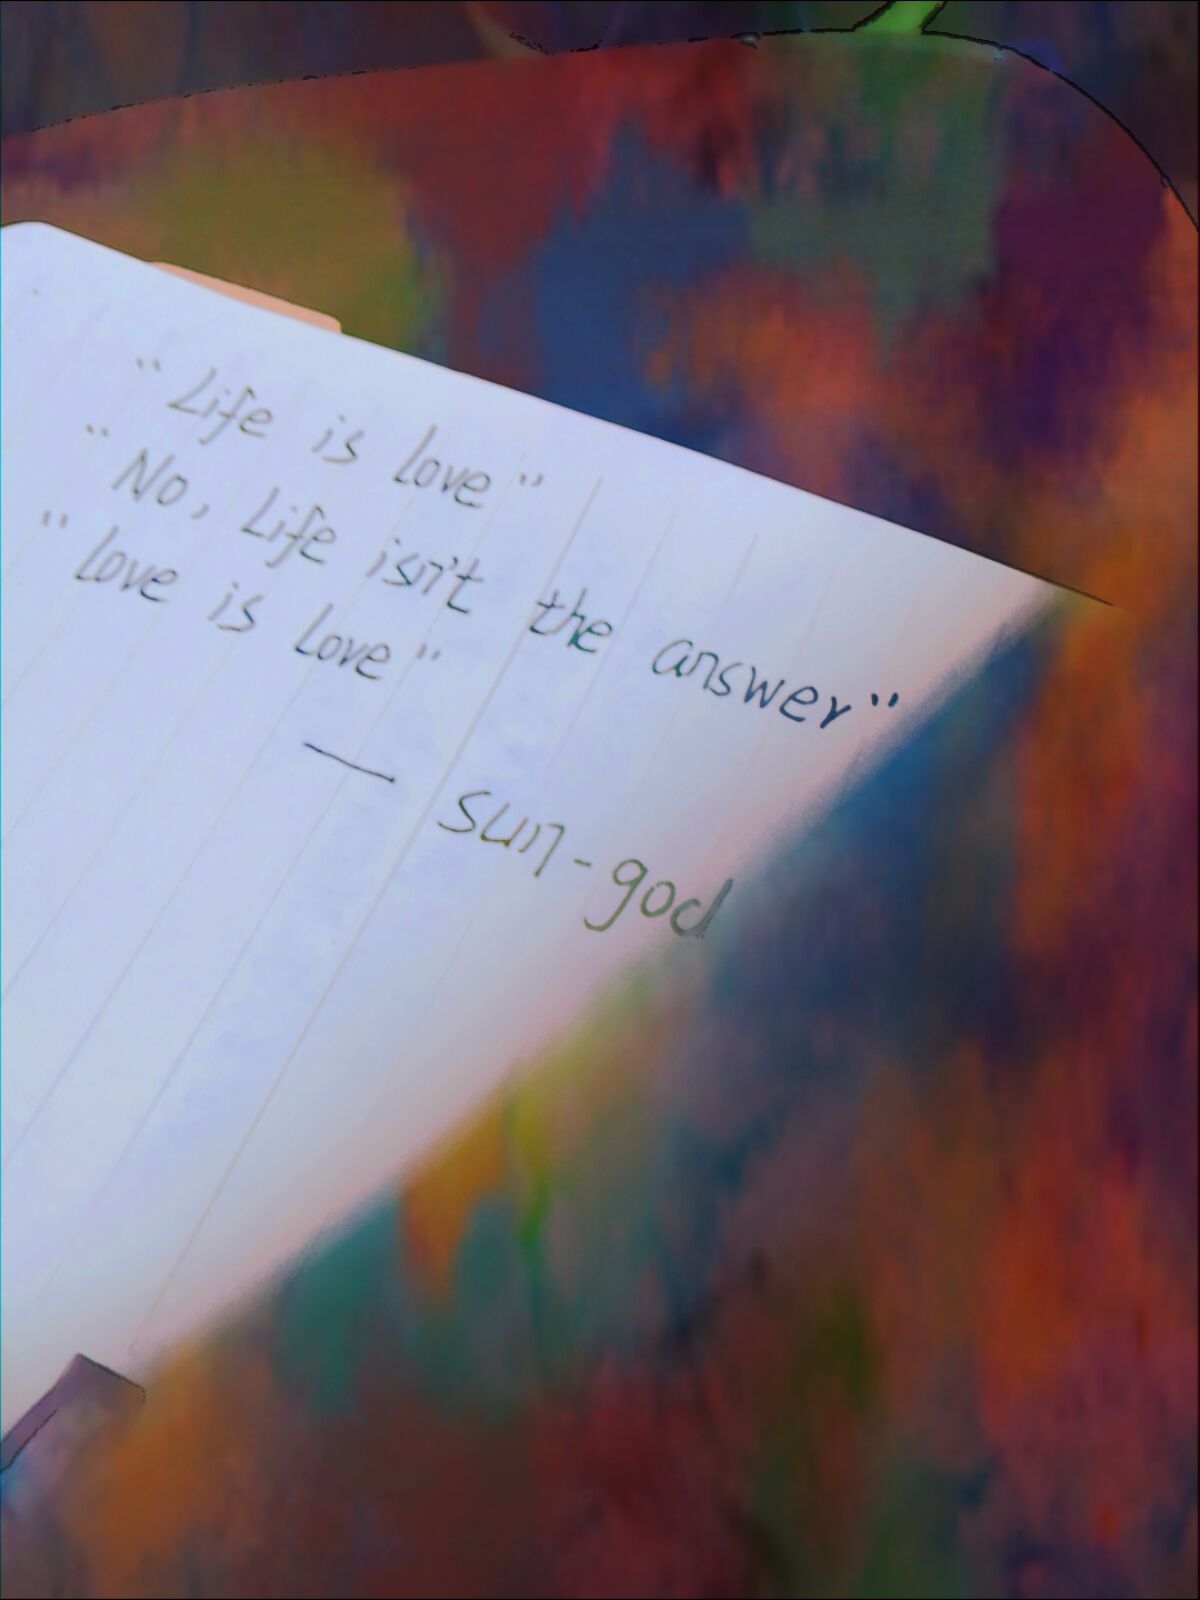 "Life is love"
"No, Life isn't the answer"
"Love is Love"
— sun-god